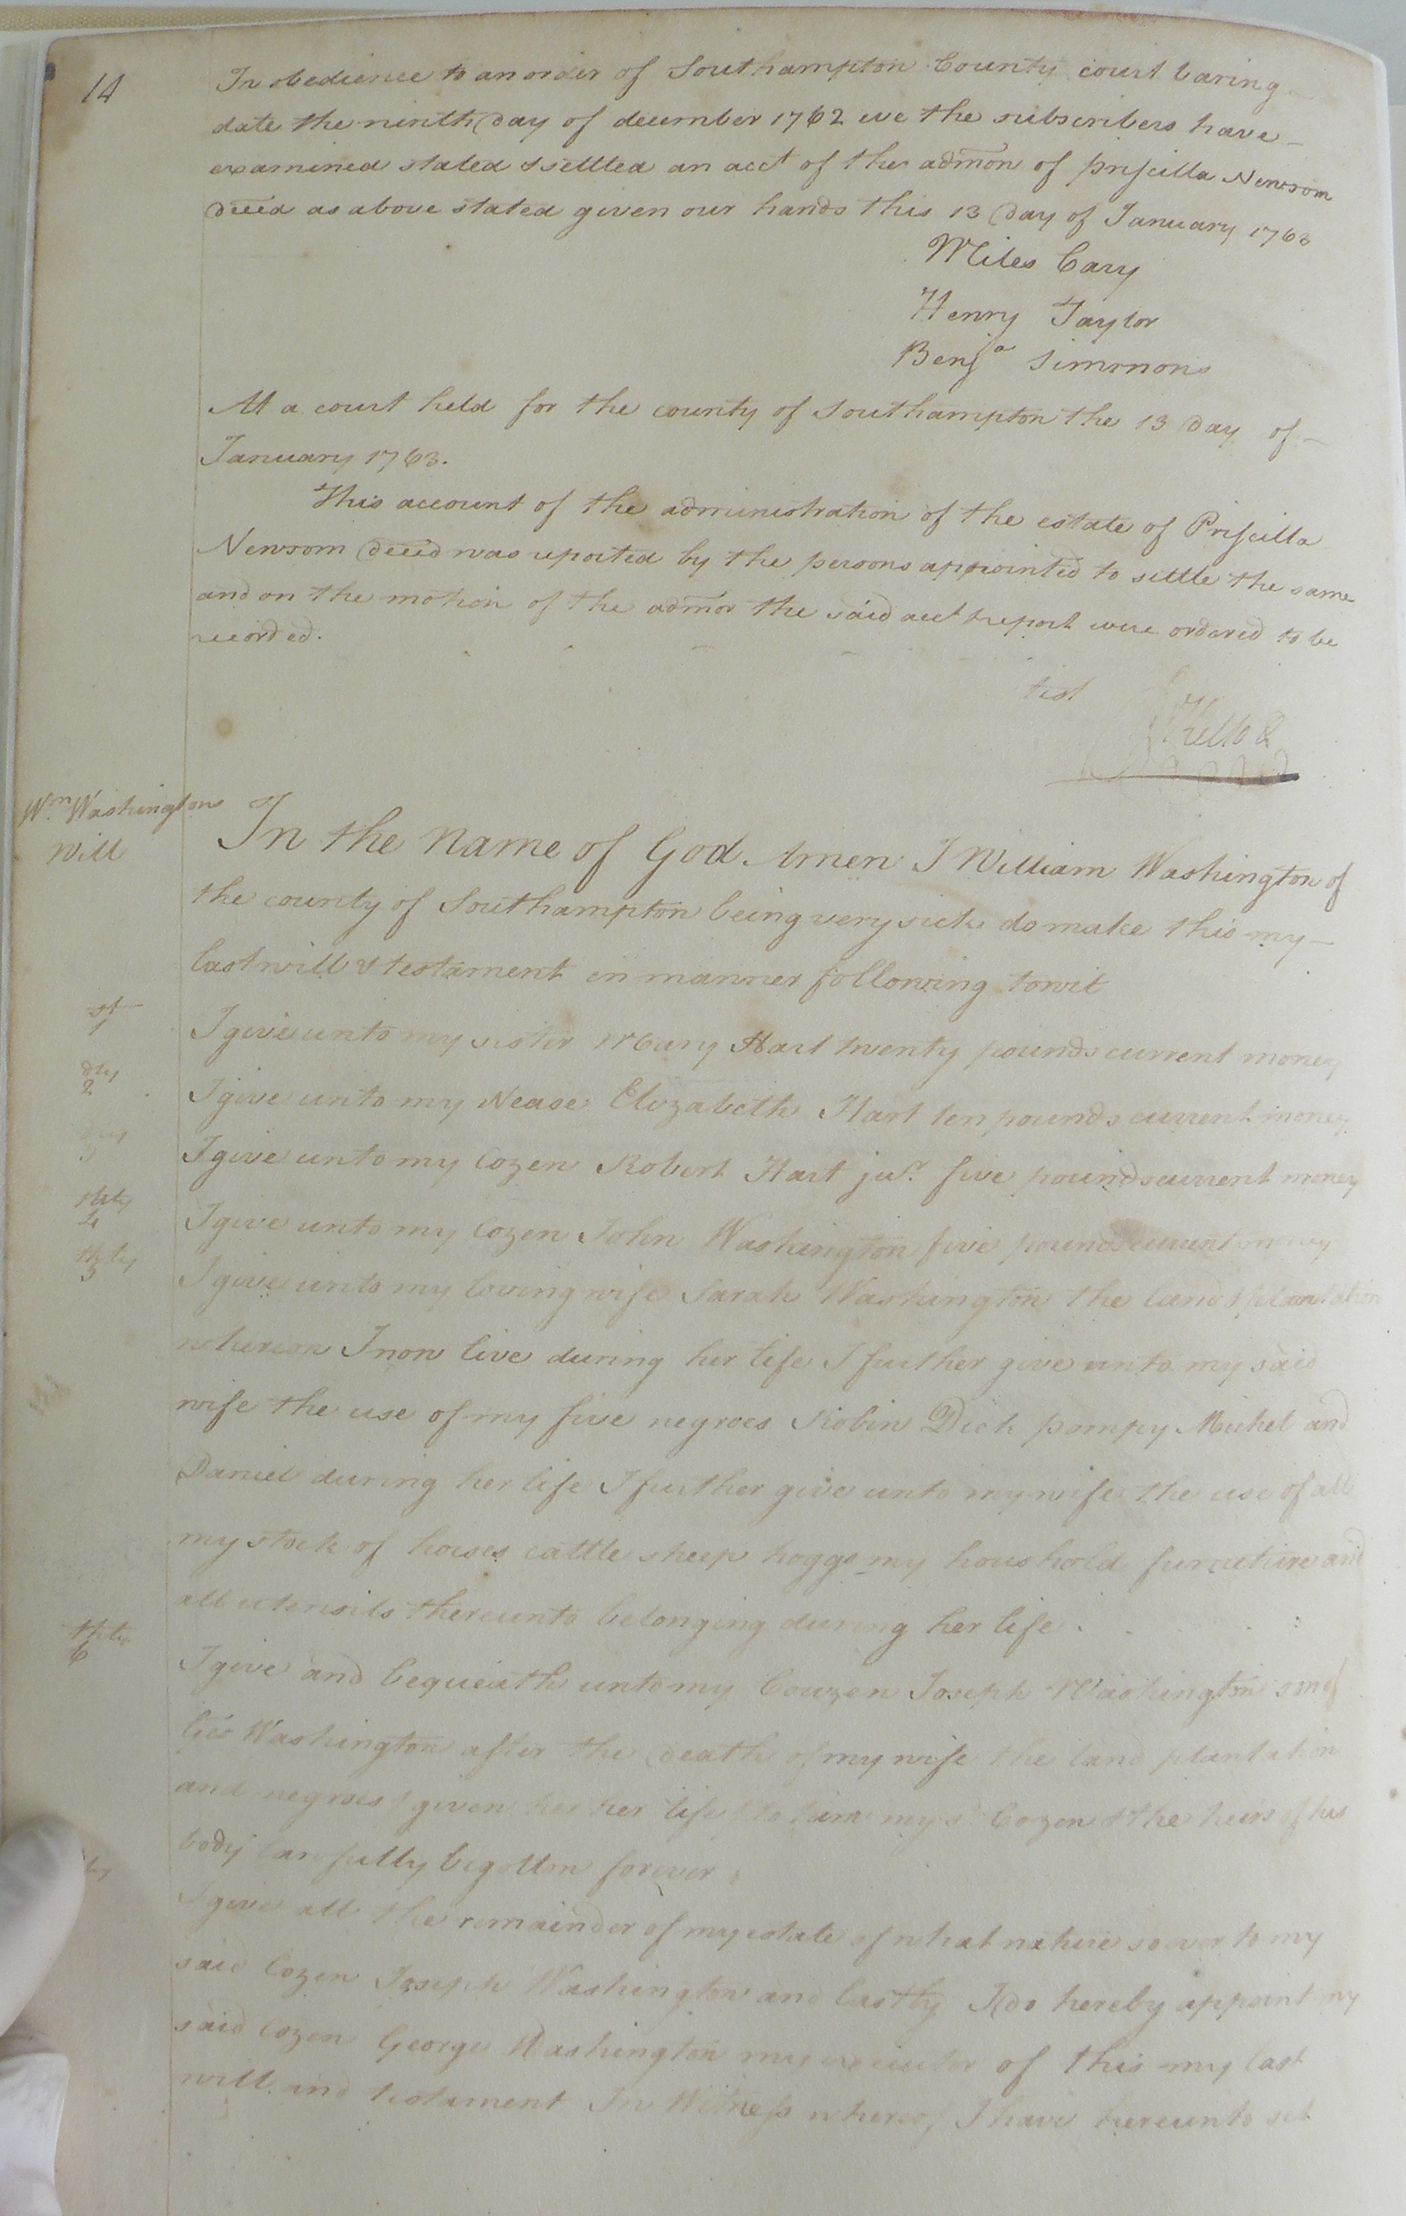 14
In obedience to an order of Southampton County court baring
date the ninth day of december 1762 we the subscribers have
examined stated & settled an acct of the admon of priscilla Newsom
deced as above stated given our hands this 13 day of January 1763
Miles Cary
Henry Taylor
Benja Simmons
At a court held for the county of Southampton the 13 day of
January 1763.
This account of the administration of the estate of Priscilla
Newsom deced was reported by the persons appointed to settle the same
and on the motion of the admor the said acct & report were ordered to be
recorded.
test
Wm Washingtons
Will
In the Name of God Amen I William Washington of
the county of Southampton being very sick do make this my
last will & testament in manner following towit
1st I give unto my sister Mary Hart twenty pounds current money
2dly I give unto my Nease Elizabeth Hart ten pounds current money
I give unto my Cozen Robert Hart jur. five pounds current money
4 I give unto my Cozen John Washington five pounds current money
5 I give unto my loving wife Sarah Washington the land & plantation
whereon I now live during her life I further give unto my said
wife the use of my five negroes Robin Dick pompy Michel and
Daniel during her life I further give unto my wife the use of all
my stock of horses cattle sheep hoggs my houshold furniture and
all utensils thereunto belonging during her life
6 I give and bequeath unto my Couzen Joseph Washington son of
Geo Washington after the death of my wife the land plantation
and negroes I given her her life to him my sd Cozen & the heirs of his
body lawfully begotten forever
I give all the remainder of my estate of what nature soever to my
said Cozen Joseph Washington and lastly I do hereby appoint my
said Cozen George Washington my executor of this my last
will and testament In Witness whereof I have hereunto set